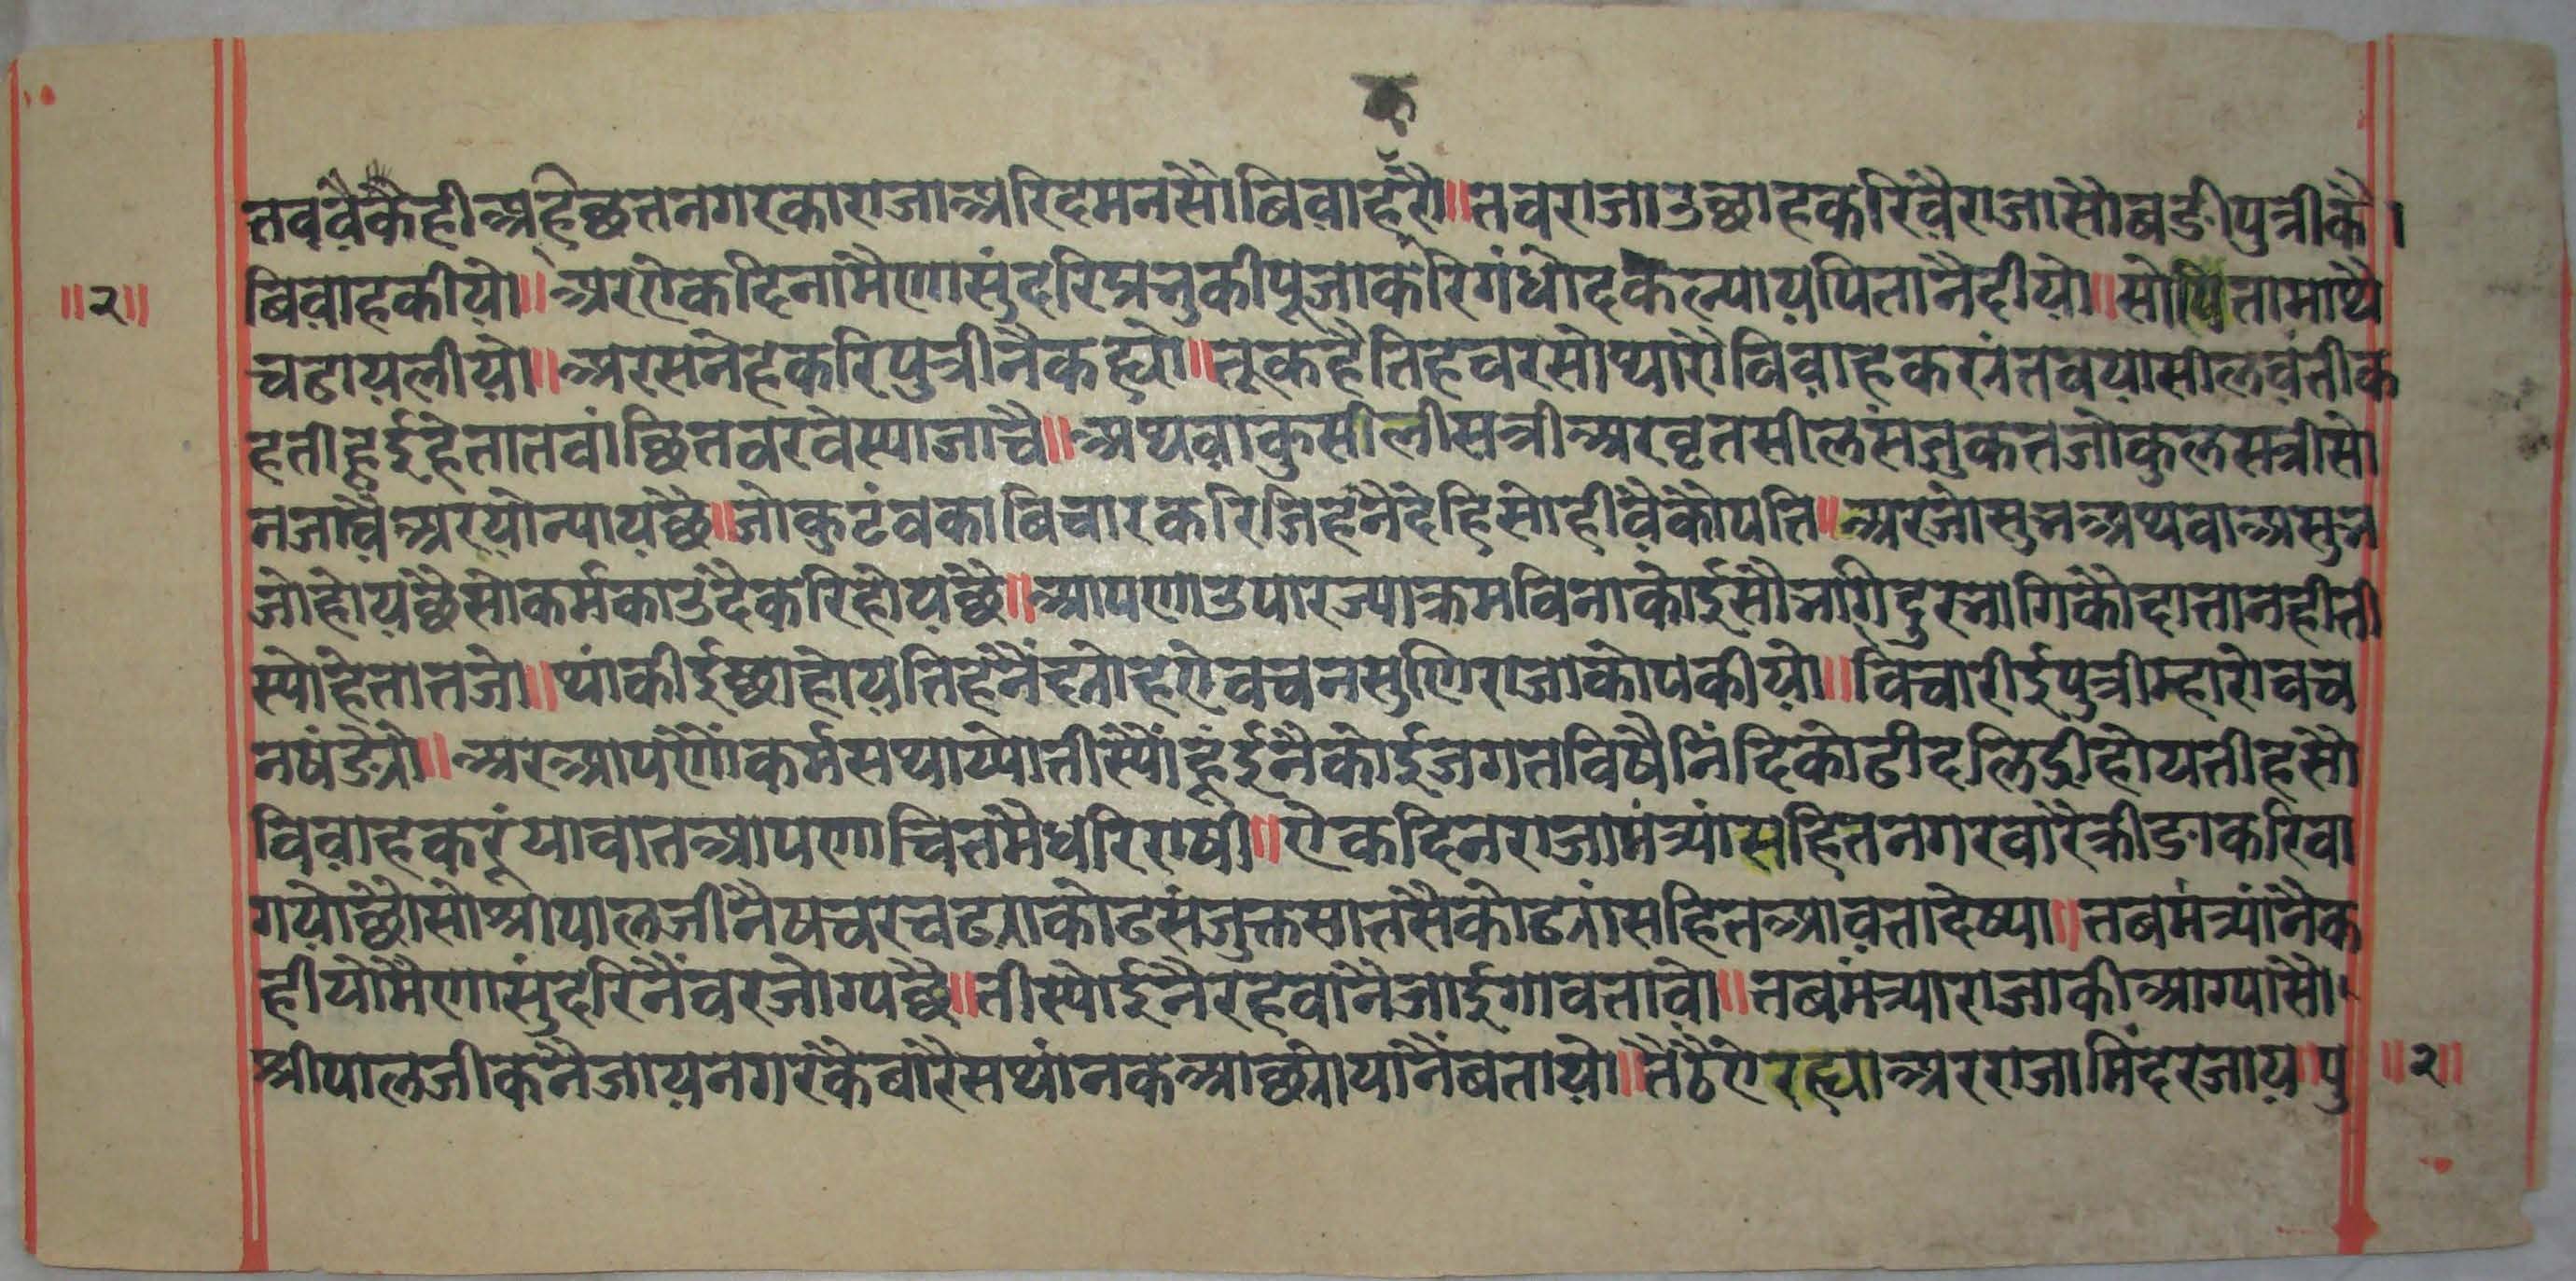 क
तववैकैही अहिछतनगरकाराजाअरिदमनसौंबिवाहरौ॥तवराजाउछाहकरिवैराजासौंबडीपुत्रीकै।
॥२॥
बिवाहकीयो॥अरऐकदिनांमैणासुंदरिप्रभुकीपूजाकरिगंधोदकल्यायपितानैदीयो॥सोपितामाथै
चढायलीयो॥अरसनेहकरिपुत्रीनैकह्यो॥तूकहैतिहवरसोंथारौविवाहकरूंतवयासीलवंतीक
हतीहूईहेतातवांछितवरवेस्याजाचै॥अथवाकुसीलीसत्रीअरवृतसीलसंजुकतजोकुलसत्रीसो
नजाचैअरयोन्यायछै॥जोकुटंवकाविचारकरिजिहनैदेहिसोहीवैकौपति॥अरजोसुभअथवाअसुभ
जोहोयछैसोकर्मकाउदैकरिहोयछै॥आपणाउपारज्याक्रमविनाकोईसौभागिदुरभागिकौदातानहीती
स्योहेतातजो॥थांकीईछाहोयतिहनैंद्योहऐवचनसुणिराजाकोपकीयो॥विचारीईपुत्रीम्हारोवच
नषंडेभौ॥अरआपणौंकर्मसथाप्योतीस्यौंहूंईनैकोईजगतविषैनिंदिकोढीदलिद्रीहोयतीहसौं
विवाहकरूंयावातआपणाचितमैधरिराषी॥ऐकदिनराजामंत्र्यांसहितनगरवारैक्रीडाकरिवा
गयोछौसोश्रीपालजीनैषचरचढ्याकोढसंजुक्तसातसैकोढ्यांसहितआवतादेष्या॥तबमंत्र्यांनैक
हीयोमैणासुंदरिनैंवरजोग्यछै॥तीस्योईनैरहवानैजाईगावतावो॥तबमंत्र्याराजाकीआग्यासौं
श्रीपालजीकनैजायनगरकैवारैसथांनकआछ्योयांनैंबतायो॥तैठैऐरह्याअरराजामिंदरजाय॥पु
॥२॥